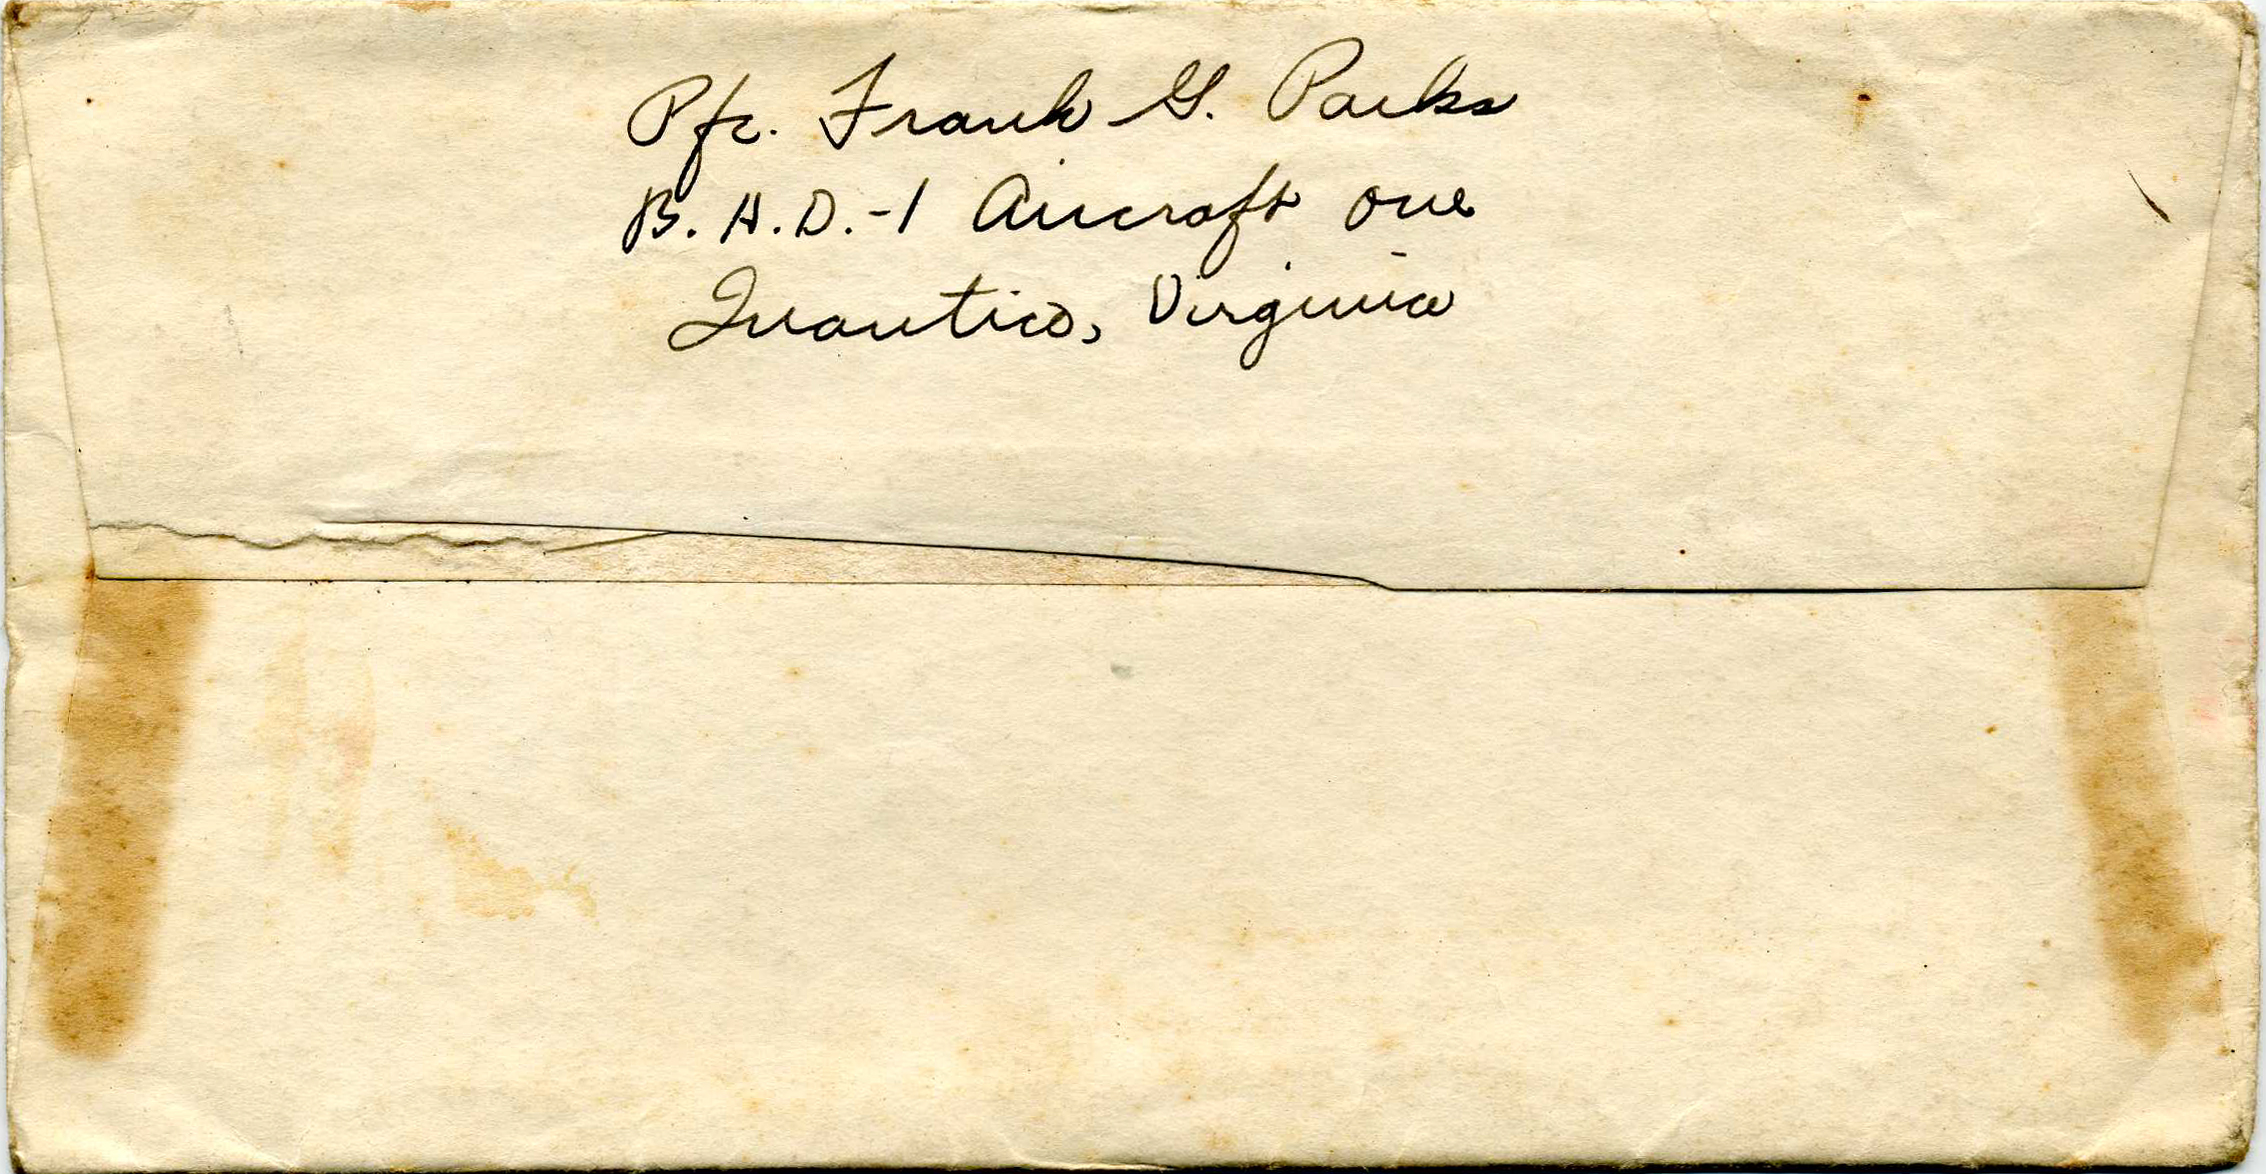 Pfc. Frank G. Parks
B. H. D.-1 Aircraft one
Quantico, Virginia